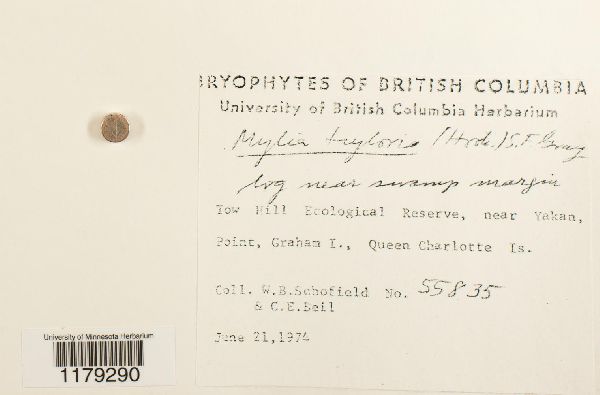 BRYOPHYTES OF BRITISH COLUMBIA
University of British Columbia Herbarium
Mylia taylorii (Hook.) S.F. Gray
log near swamp margin
Tow Hill Ecological Reserve, near Yakan,
Point, Graham I., Queen Charlotte Is.
Coll. W.B.Schofield No. 55835
& C.E.Beil
June 21,1974
University of Minnesota Herbarium
1179290